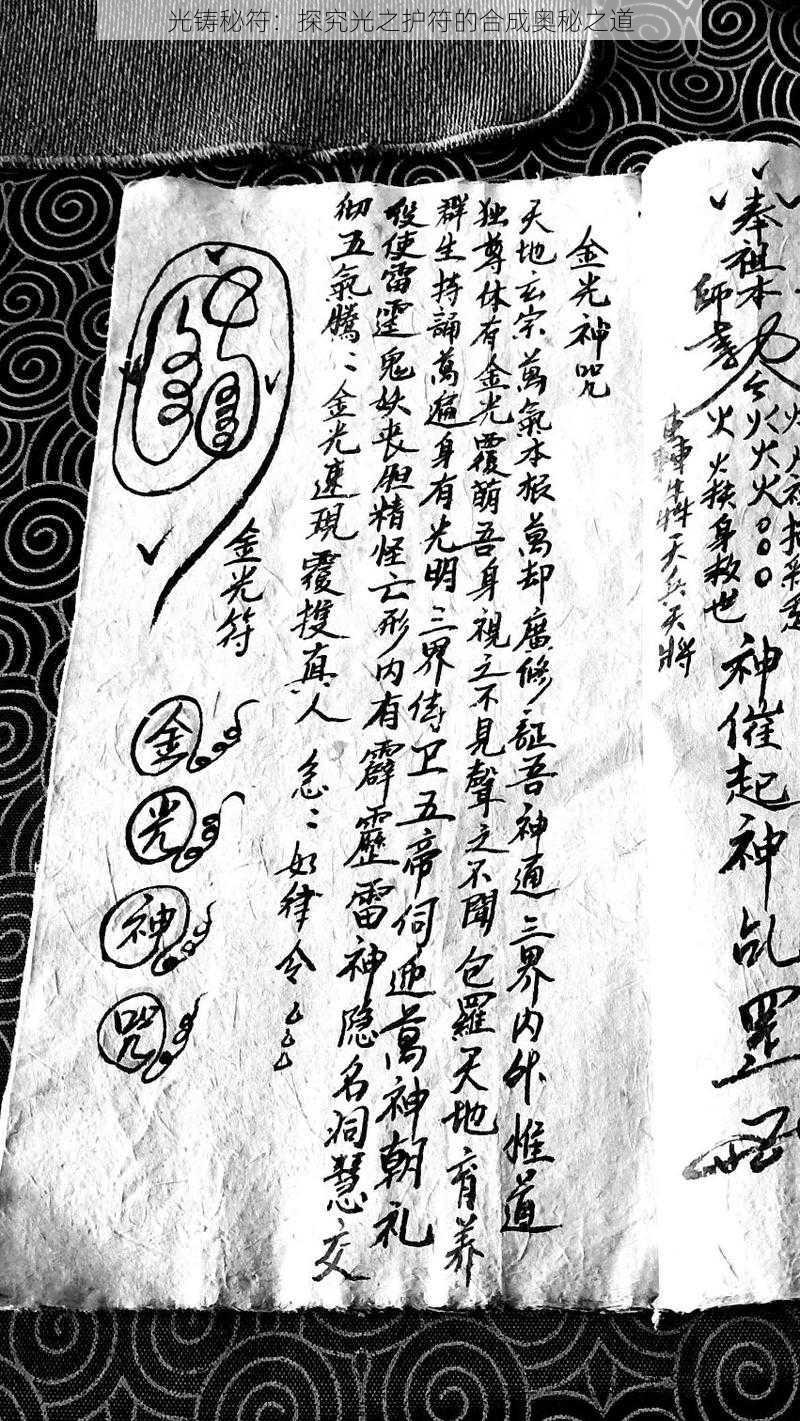 光铸秘符：探究光之护符的合成奥秘之道
奉祖本
師
火火挨身救世
天兵天将
神催起神
金光神咒
天地玄宗萬氣本根萬却廣修証吾神通三界内外惟道
独尊体有金光覆萌吾身視之不見聲之不聞包羅天地育养
群生持誦萬遍身有光明三界侍卫五帝伺迎萬神朝礼
役使雷霆鬼妖丧胆精怪亡形内有霹靂雷神隐名洞慧交
彻五氣騰〻金光速現覆護真人急〻如律令
金光符
金
光
神
咒